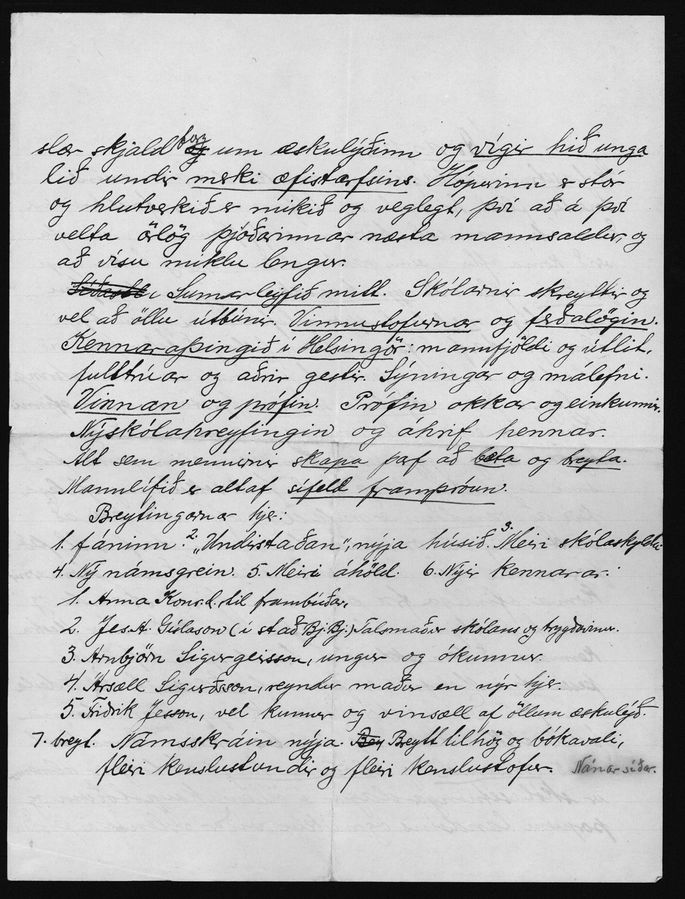 slær skjaldborg um æskulýðinn og vígir hið unga
lið undir merki æfistarfsins. Hópurinn er stór
og hlutverkið er mikið og veglegt, því að á því
velta örlög þjóðarinnar næsta mannsaldur, og
að vísu miklu lengur.
Síðast Sumarleyfið mitt. Skólarnir skreyttir og
vel að öllu útbúnir. Vinnustofurnar og ferðalögin.
Kennaraþingið í Helsingör: mannfjöldi og útlit,
fulltrúar og aðrir gestir. Sýningar og málefni.
Vinnan og prófin. Prófin okkar og einkunnir.
Nýskólahreyfingin og áhrif hennar.
Alt sem mennirnir skapa þarf að bæta og breyta.
Mannlífið er altaf sífeld framþróun.
Breytingarnar hjer:
1. fáninn. 2. "Undirstaðan", nýja húsið. 3. Meiri skólaskylda
4. Ný námsgrein. 5. Meiri áhöld. 6. Nýir kennarar:
1. Anna Konr.d. til frambúðar.
2. Jes. A. Gíslason (í stað Bj. Bj.) Talsmaður skólans og tryggðavinur.
3. Arnbjörn Sigurgeirsson, ungur og ókunnur.
4. Ársæll Sigurðsson, reyndur maður en nýr hjer.
5. Friðrik Jesson, vel kunnur og vinsæll af öllum æskulýð.
7. breyt. Námsskráin nýja. Bey Breytt tilhög og bókavali,
fleiri kenslustundir og fleiri kenslustofur. Nánar síðar.